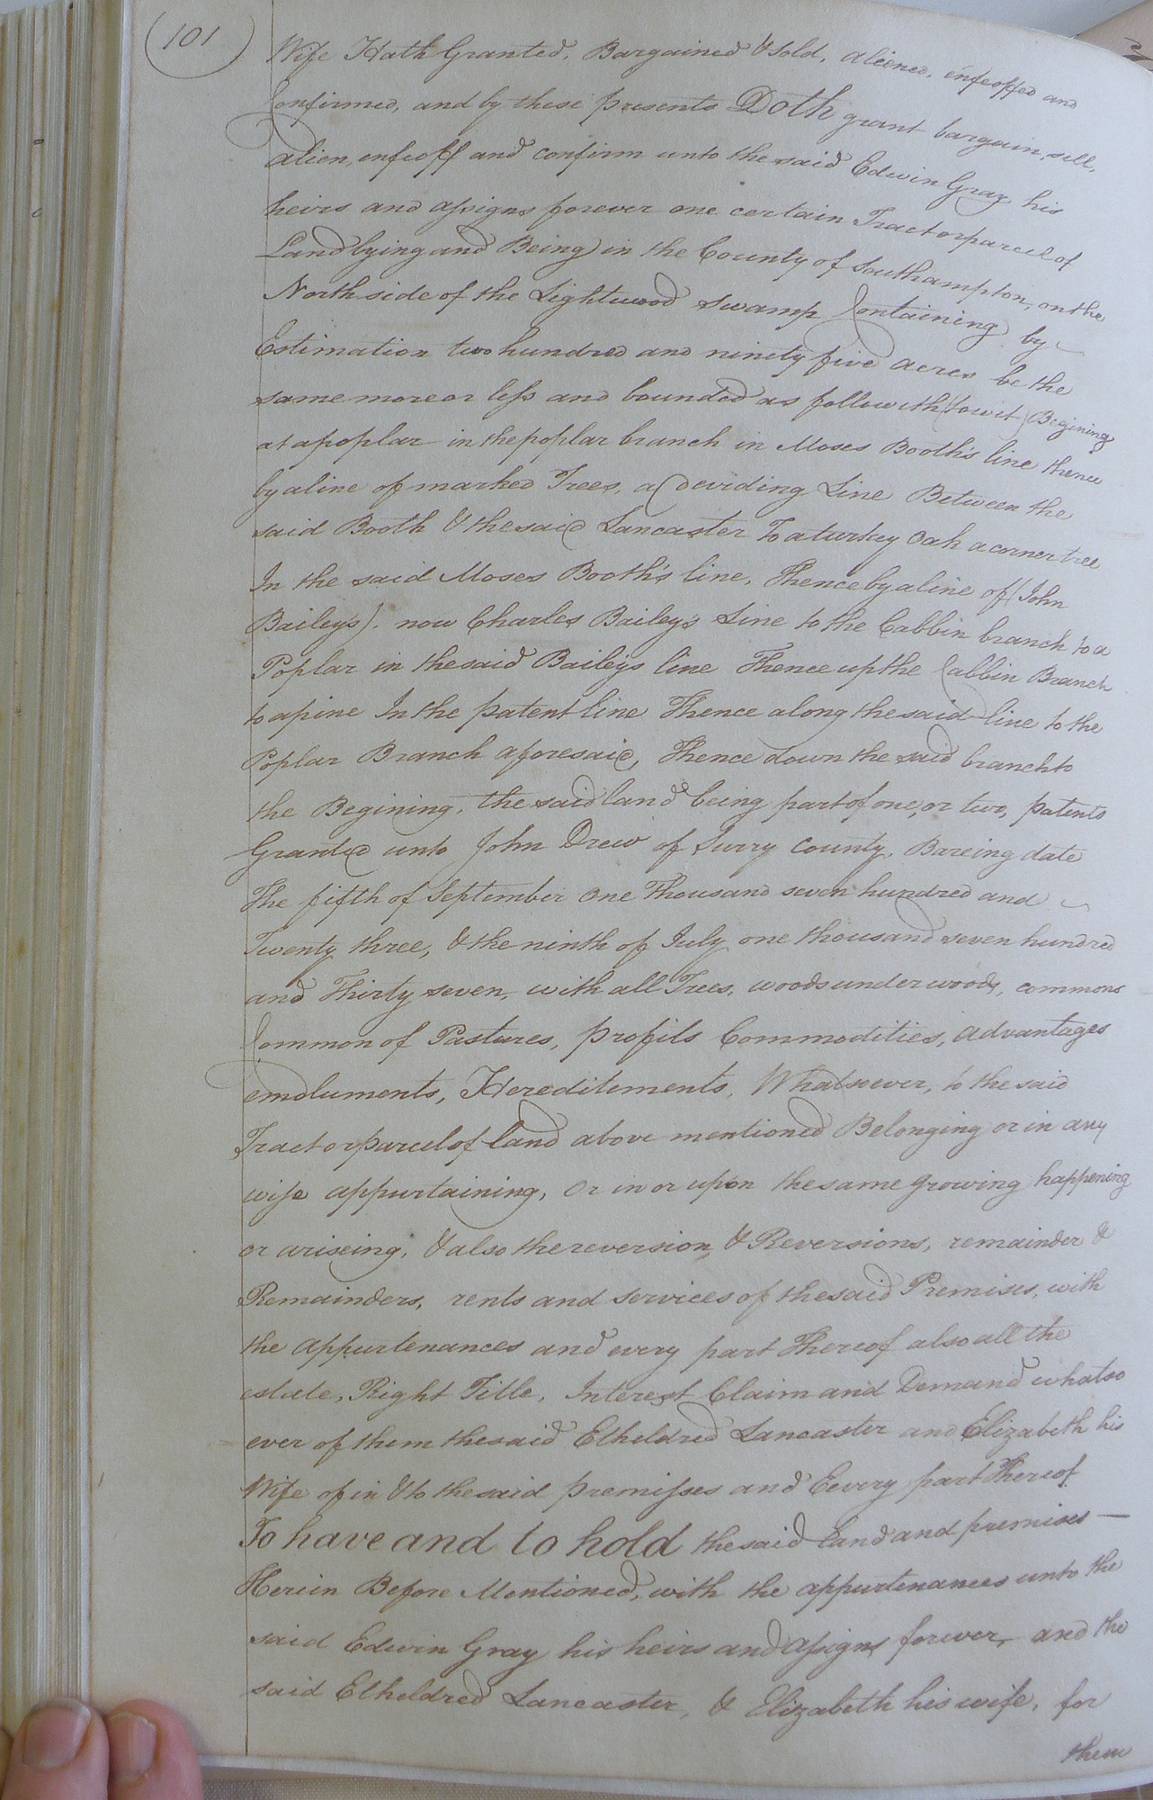 (101)
Wife Hath Granted, Bargained & Sold, aliened, enfeoffed and
Confirmed, and by these presents Doth grant bargain, sell,
alien, enfeoff and confirm unto the said Edwin Gray his
heirs and assigns forever one certain Tract or parcel of
Land lying and Being in the County of Southampton, on the
North side of the Lightwood swamp Containing by
Estimation two hundred and ninety five acres be the
same more or less and bounded as followith (towit) Begining
at a poplar in the poplar branch in Moses Booth's line thence
by a line of marked Trees, a deviding Line Between the
said Booth & the said Lancaster To a turkey Oak a corner tree
In the said Moses Booth's line, Thence by a line of (John
Bailey's). now Charles Bailey's Line to the Cabbin branch to a
Poplar in the said Baileys line Thence up the Cabbin Branch
to a pine In the patent line Thence along the said line to the
Poplar Branch aforesaid, Thence down the said branch to
the Begining, the said land being part of one, or two, patents
Granted unto John Drew of Surry County, Bareing date
The fifth of September One Thousand seven hundred and
Twenty three, & the ninth of July one thousand seven hundred
and Thirty seven, with all Trees, woods under woods, commons
Common of Pastures, profits Commodities, advantages
emoluments, Hereditements, Whatsoever, to the said
Tract or parcel of land above mentioned Belonging or in any
wise appurtaining, Or in or upon the same growing happening
or ariseing, & also the reversion, & Reversions, remainder &
Remainders, rents and services of the said Premises, with
the appurtenances and every part Thereof also all the
estate, Right Title, Interest Claim and Demand whatso
ever of them the said Etheldred Lancaster and Elizabeth his
Wife of in & to the said premisses and Eevery part Thereof.
To have and to hold the said Land and premises —
Herein Before Mentioned, with the appurtenances unto the
said Edwin Gray his heirs and assigns forever, and the
said Etheldred Lancaster, & Elizabeth his wife, for
them